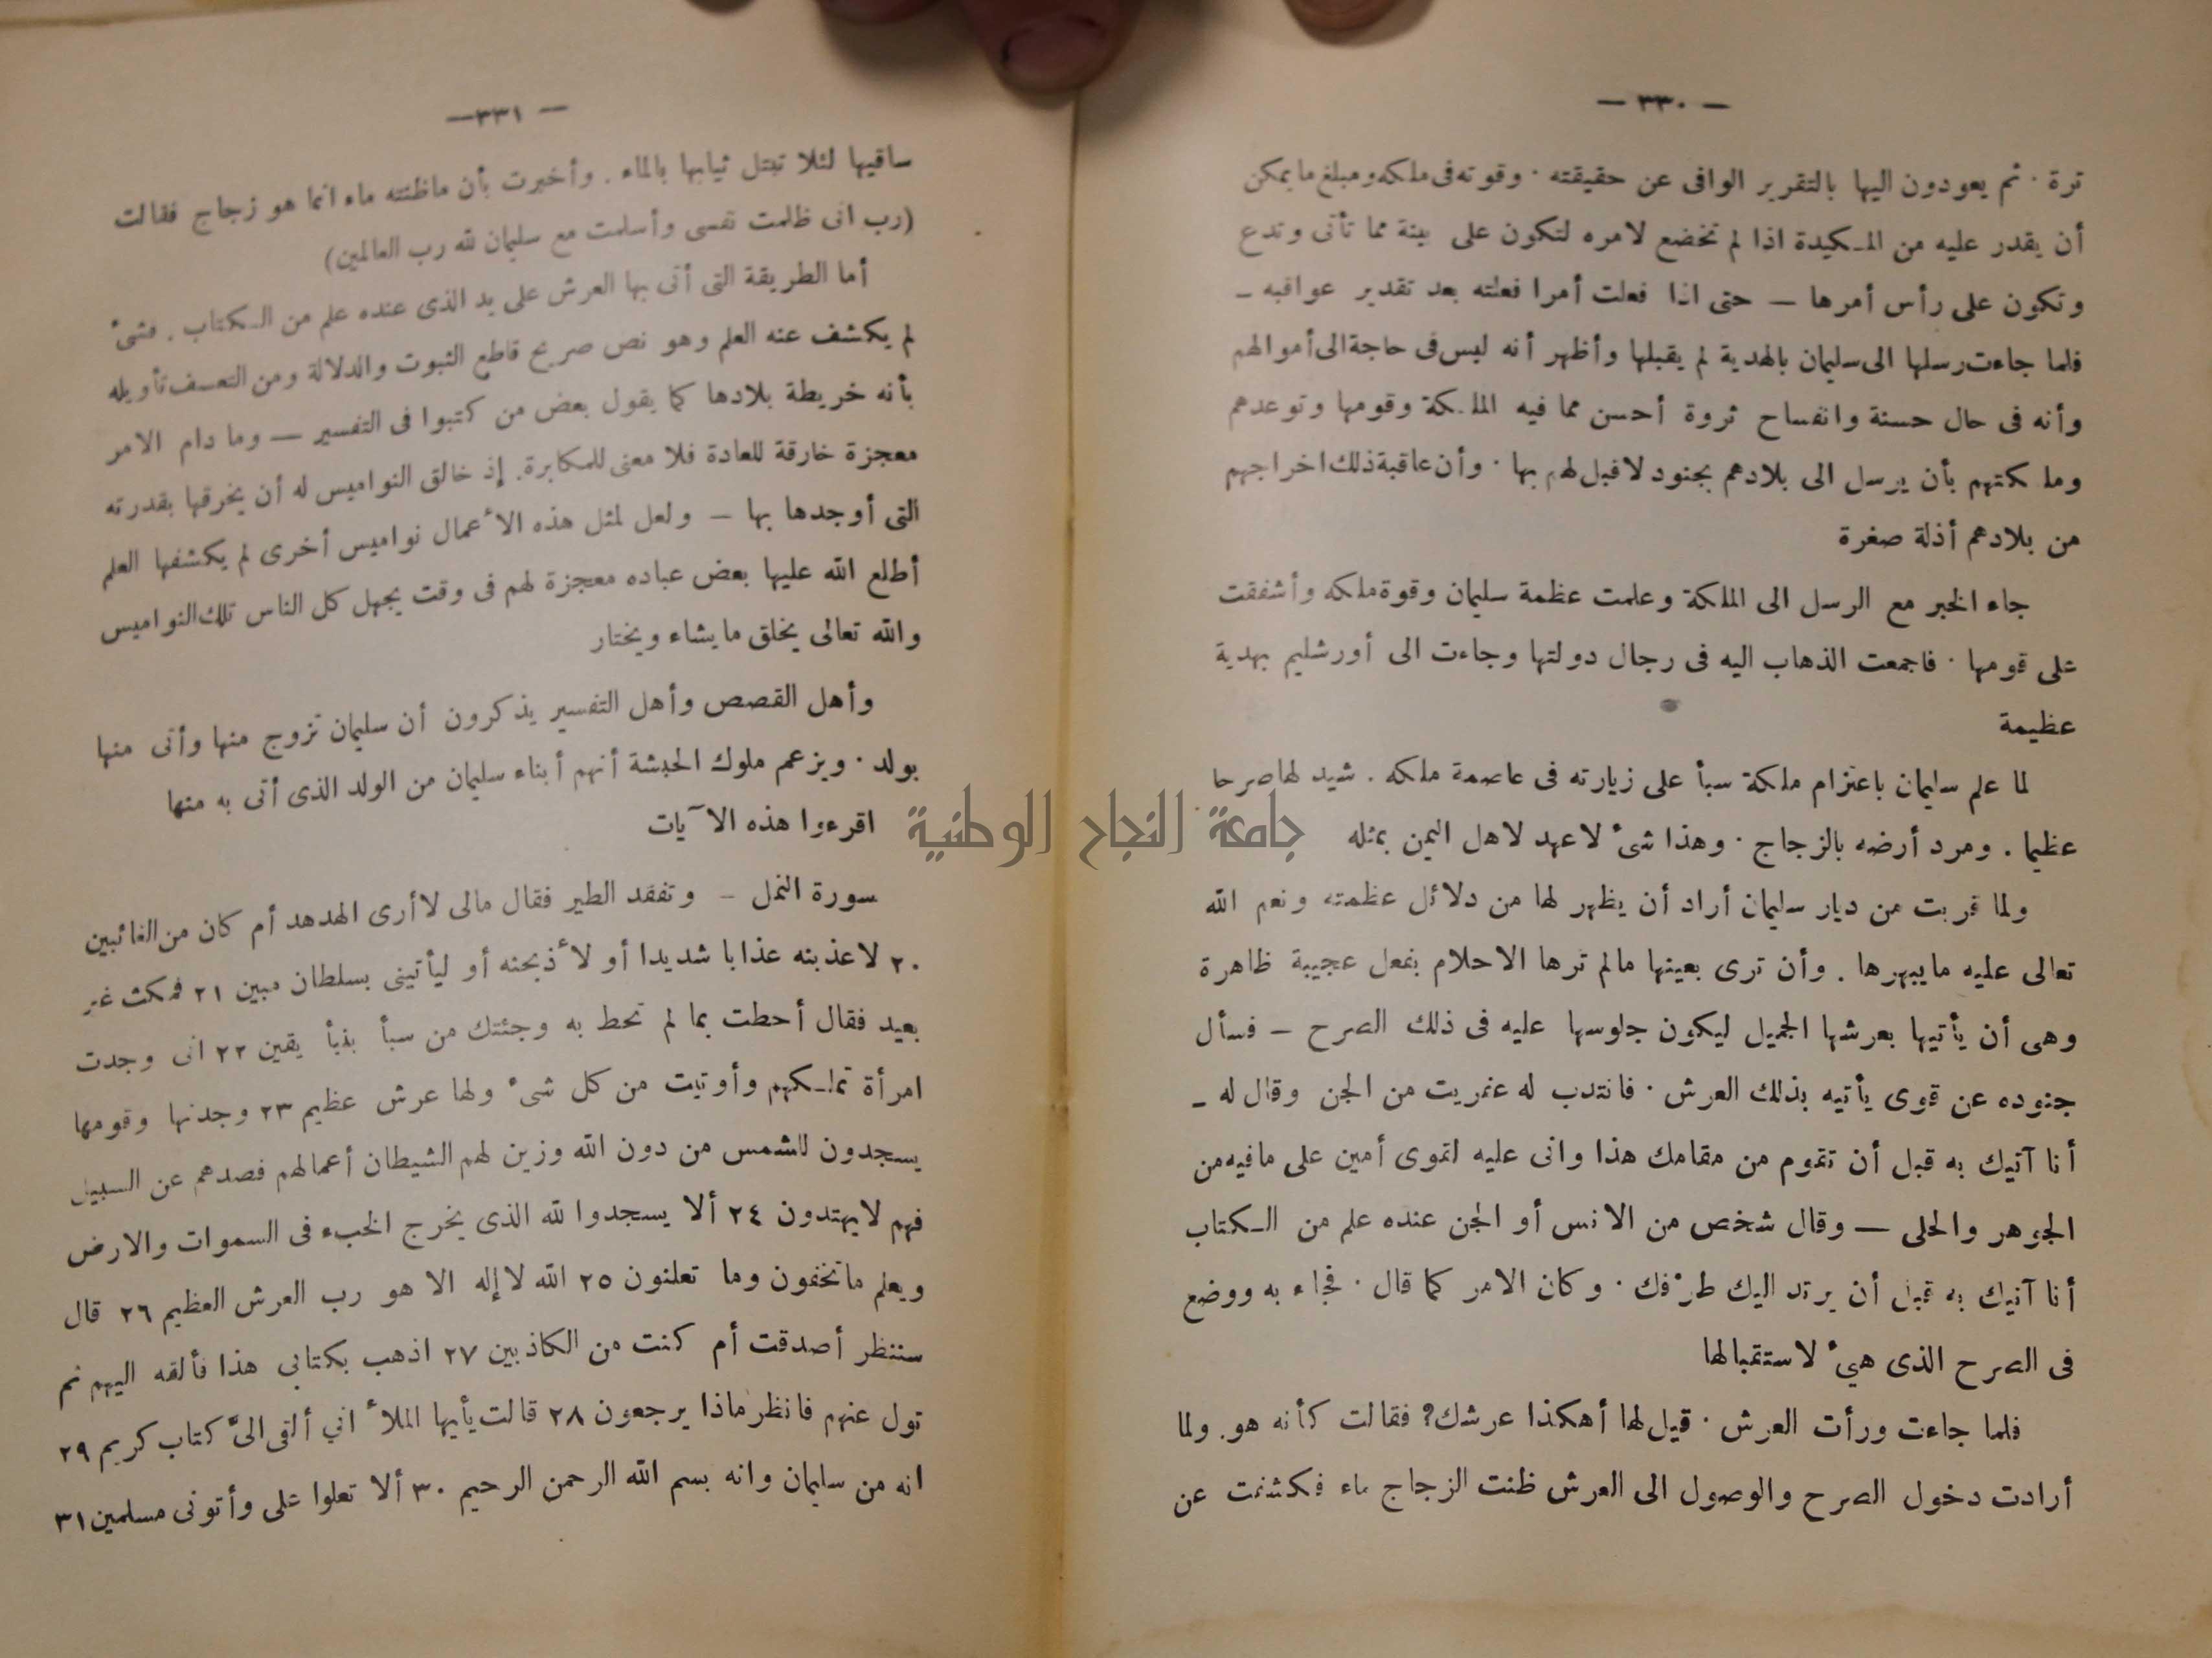 — ٣٣٠ —
ترة . ثم يعودون اليها بالتقرير الوافى عن حقيقته . وقوته فى ملكه ومبلغ ما يمكن
أن يقدر عليه من المكيدة اذا لم تخضع لامره لتكون على بينة مما تأتى وتدع
وتكون على رأس أمرها — حتى اذا فعلت أمرا فعلته بعد تقدير عواقبه —
فلما جاءت رسلها الى سليمان بالهدية لم يقبلها وأظهر أنه ليس فى حاجة الى أموالهم
وأنه فى حال حسنة وانفساح ثروة أحسن مما فيه الملكة وقومها وتوعدهم
وملكتهم بأن يرسل الى بلادهم بجنود لا قبل لهم بها . وأن عاقبة ذلك اخراجهم
من بلادهم أذلة صغرة
جاء الخبر مع الرسل الى الملكة وعلمت عظمة سليمان وقوة ملكه وأشفقت
على قومها . فاجمعت الذهاب اليه فى رجال دولتها وجاءت الى أورشليم بهدية
عظيمة
لما علم سليمان باعتزام ملكة سبأ على زيارته فى عاصمة ملكه . شيد لها صرحا
عظيما . ومرد أرضه بالزجاج . وهذا شىء لا عهد لاهل اليمن بمثله
ولما قربت من ديار سليمان أراد أن يظهر لها من دلائل عظمته ونعم الله
تعالى عليه ما يبهرها . وأن ترى بعينها مالم ترها الاحلام بفعل عجيبة ظاهرة
وهى أن يأتيها بعرشها الجميل ليكون جلوسها عليه فى ذلك الصرح — فسأل
جنوده عن قوى يأتيه بذلك العرش . فانتدب له عفريت من الجن وقال له —
أنا آتيك به قبل أن تقوم من مقامك هذا وانى عليه لقوى أمين على ما فيه من
الجوهر والحلى — وقال شخص من الانس أو الجن عنده علم من الكتاب
أنا آتيك به قبل أن يرتد اليك طرْفك . وكان الامر كما قال . فجاء به ووضع
فى الصرح الذى هيء لاستقبالها
فلما جاءت ورأت العرش . قيل لها أهكذا عرشك؟ فقالت كأنه هو. ولما
أرادت دخول الصرح والوصول الى العرش ظنت الزجاج ماء فكشفت عن
— ٣٣١ —
ساقيها لئلا تبتل ثيابها بالماء . وأخبرت بأن ماظنته ماء انما هو زجاج فقالت
(رب انى ظلمت نفسى وأسلمت مع سليمان لله رب العالمين)
أما الطريقة التى أتى بها العرش على يد الذى عنده علم من الكتاب . فشىء
لم يكشف عنه العلم وهو نص صريح قاطع الثبوت والدلالة ومن التعسف تأويله
بأنه خريطة بلادها كما يقول بعض من كتبوا فى التفسير — وما دام الامر
معجزة خارقة للعادة فلا معنى للمكابرة. إذ خالق النواميس له أن يخرقها بقدرته
التى أوجدها بها — ولعل لمثل هذه الأعمال نواميس أخرى لم يكشفها العلم
أطلع الله عليها بعض عباده معجزة لهم فى وقت يجهل كل الناس تلك النواميس
والله تعالى يخلق ما يشاء ويختار
وأهل القصص وأهل التفسير يذكرون أن سليمان تزوج منها وأتى منها
بولد . ويزعم ملوك الحبشة أنهم أبناء سليمان من الولد الذى أتى به منها
اقرءوا هذه الآيات
سورة النمل — وتفقد الطير فقال مالى لا أرى الهدهد أم كان من الغائبين
٢٠ لاعذبنه عذابا شديدا أو لأذبحنه أو ليأتينى بسلطان مبين ٢١ فمكث غير
بعيد فقال أحطت بما لم تحط به وجئتك من سبأ بنبأ يقين ٢٢ انى وجدت
امرأة تملكهم وأوتيت من كل شىء ولها عرش عظيم ٢٣ وجدتها وقومها
يسجدون للشمس من دون الله وزين لهم الشيطان أعمالهم فصدهم عن السبيل
فهم لا يهتدون ٢٤ ألا يسجدوا لله الذى يخرج الخبء فى السموات والارض
ويعلم ما تخفون وما تعلنون ٢٥ الله لا إله الا هو رب العرش العظيم ٢٦ قال
سننظر أصدقت أم كنت من الكاذبين ٢٧ اذهب بكتابى هذا فألقه اليهم ثم
تول عنهم فانظر ماذا يرجعون ٢٨ قالت يأيها الملأ اني ألقى الىّ كتاب كريم ٢٩
انه من سليمان وانه بسم الله الرحمن الرحيم ٣٠ ألا تعلوا على وأتونى مسلمين ٣١
جامعة النجاح الوطنية